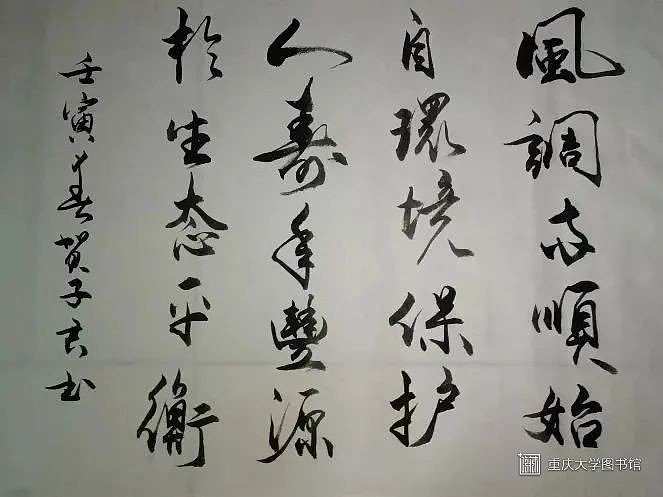 風調雨順始
自環境保护
人壽年豐源
於生态平衡
壬寅春贺子君书
重庆大学图书馆